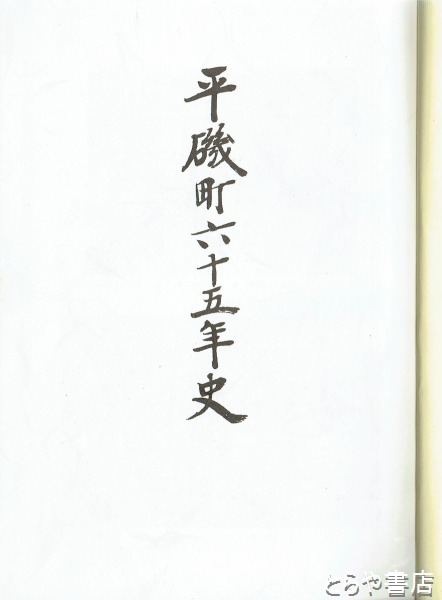 平磯町六十五年史
とらや書店